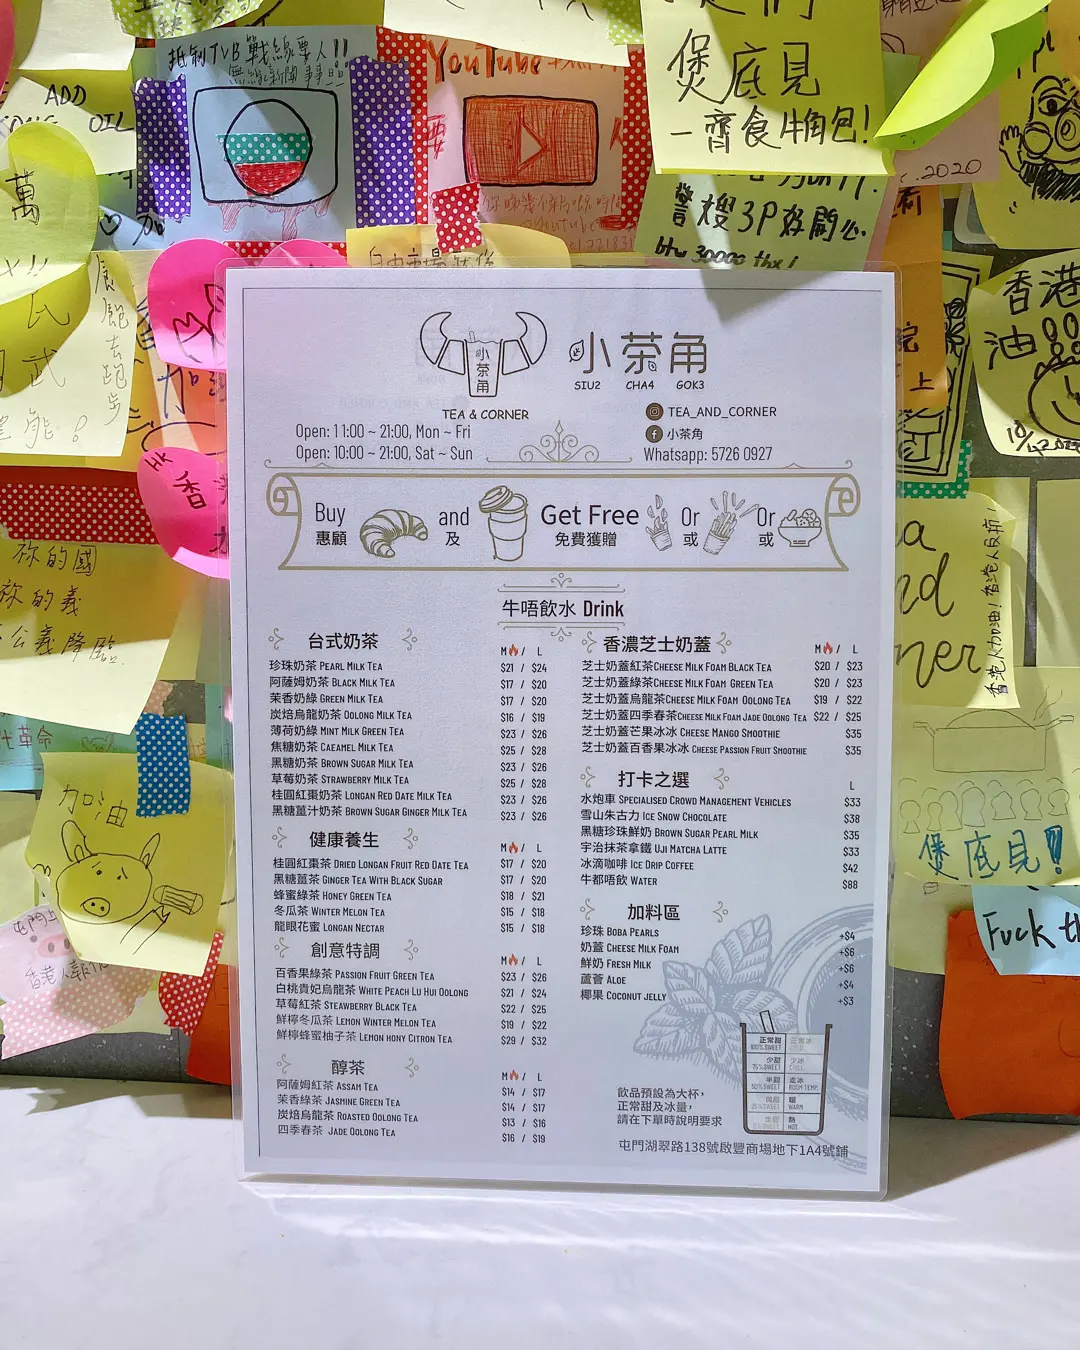 抵制TVB戰線要人!!
YouTube
ADD
OIL
煲底見
一齊食牛角包!
2020
萬
香港
油
加油
香
祢的國
祢的義
公義降臨
代革命
加油
煲底見!
Fuck th
香港人加油!香港人反抗!
小茶角
小茶角
SIU2 CHA4 GOK3
TEA & CORNER
TEA_AND_CORNER
小茶角
Open: 11:00 ~ 21:00, Mon ~ Fri
Open: 10:00 ~ 21:00, Sat ~ Sun
Whatsapp: 5726 0927
Buy and Get Free Or Or
惠顧 及 免費獲贈 或 或
牛唔飲水 Drink
台式奶茶 M / L
珍珠奶茶 Pearl Milk Tea $21 / $24
阿薩姆奶茶 Black Milk Tea $17 / $20
茉香奶綠 Green Milk Tea $17 / $20
炭焙烏龍奶茶 Oolong Milk Tea $16 / $19
薄荷奶綠 Mint Milk Green Tea $23 / $26
焦糖奶茶 Caeamel Milk Tea $25 / $28
黑糖奶茶 Brown Sugar Milk Tea $23 / $26
草莓奶茶 Strawberry Milk Tea $25 / $28
桂圓紅棗奶茶 Longan Red Date Milk Tea $23 / $26
黑糖薑汁奶茶 Brown Sugar Ginger Milk Tea $23 / $26
健康養生 M / L
桂圓紅棗茶 Dried Longan Fruit Red Date Tea $17 / $20
黑糖薑茶 Ginger Tea With Black Sugar $17 / $20
蜂蜜綠茶 Honey Green Tea $18 / $21
冬瓜茶 Winter Melon Tea $15 / $18
龍眼花蜜 Longan Nectar $15 / $18
創意特調 M / L
百香果綠茶 Passion Fruit Green Tea $23 / $26
白桃貴妃烏龍茶 White Peach Lu Hui Oolong $21 / $24
草莓紅茶 Steawberry Black Tea $22 / $25
鮮檸冬瓜茶 Lemon Winter Melon Tea $19 / $22
鮮檸蜂蜜柚子茶 Lemon hony Citron Tea $29 / $32
醇茶 M / L
阿薩姆紅茶 Assam Tea $14 / $17
茉香綠茶 Jasmine Green Tea $14 / $17
炭焙烏龍茶 Roasted Oolong Tea $13 / $16
四季春茶 Jade Oolong Tea $16 / $19
香濃芝士奶蓋 M / L
芝士奶蓋紅茶Cheese Milk Foam Black Tea $20 / $23
芝士奶蓋綠茶Cheese Milk Foam Green Tea $20 / $23
芝士奶蓋烏龍茶Cheese Milk Foam Oolong Tea $19 / $22
芝士奶蓋四季春茶Cheese Milk Foam Jade Oolong Tea $22 / $25
芝士奶蓋芒果冰冰 Cheese Mango Smoothie $35
芝士奶蓋百香果冰冰 Cheese Passion Fruit Smoothie $35
打卡之選 L
水炮車 Specialised Crowd Management Vehicles $33
雪山朱古力 Ice Snow Chocolate $38
黑糖珍珠鮮奶 Brown Sugar Pearl Milk $35
宇治抹茶拿鐵 Uji Matcha Latte $33
冰滴咖啡 Ice Drip Coffee $42
牛都唔飲 Water $88
加料區
珍珠 Boba Pearls +$4
奶蓋 Cheese Milk Foam +$6
鮮奶 Fresh Milk +$6
蘆薈 Aloe +$4
椰果 Coconut jelly +$3
飲品預設為大杯,
正常甜及冰量,
請在下單時說明要求
正常甜 正常冰
100%SWEET
少甜 少冰
75%SWEET
半甜 走冰
50%SWEET ROOM TEMP.
暖
25%SWEET WARM
熱
HOT
屯門湖翠路138號啟豐商場地下1A4號鋪